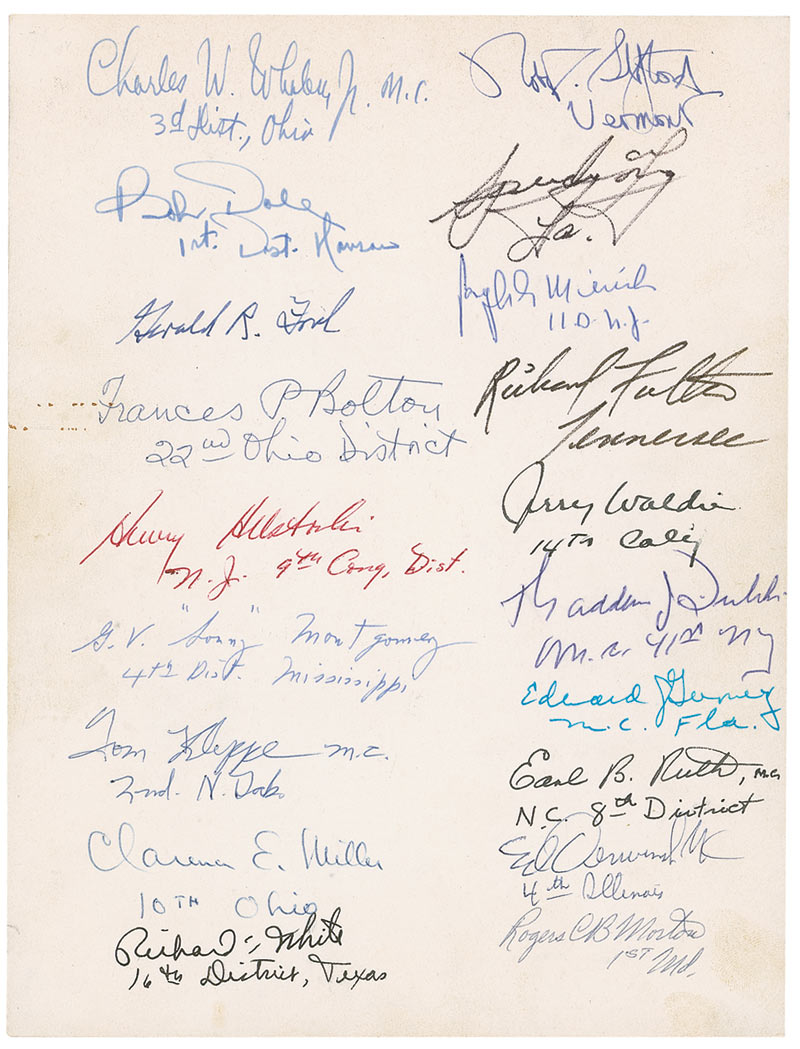 Charles W. Whalen, Jr. M.C.
3d Dist., Ohio
Bob Dole
1st. Dist. Kansas
Gerald R. Ford
Frances P Bolton
22nd Ohio District
Henry Helstoski
N.J. 9th Cong. Dist.
G. V. "Sonny" Montgomery
4th Dist. Mississippi
Tom Kleppe M.C.
2nd. N. Dak
Clarence E. Miller
10TH Ohio
Richard White
16th District, Texas
Robt. Stafford
Vermont
Speedy O. Long
La.
Joseph G. Minish
11 D. N.J.
Richard Fulton
Tennessee
Jerry Waldie
14TH Calif
Thaddeus J. Dulski
M.C. 41st NY
Edward J Gurney
M.C. Fla.
Earl B. Ruth, M.C.
N.C. 8th District
Ed Derwinski MC
4th Illinois
Rogers C B Morton
1ST Md.